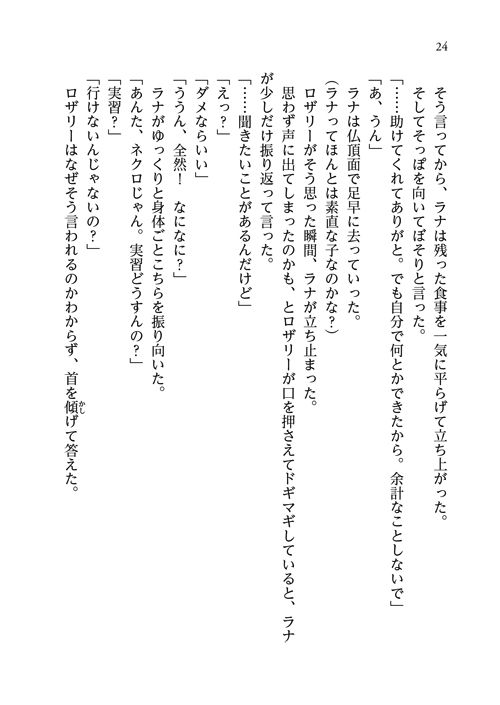 24
そう言ってから、ラナは残った食事を一気に平らげて立ち上がった。
そしてそっぽを向いてぼそりと言った。
「……助けてくれてありがと。でも自分で何とかできたから。余計なことしないで」
「あ、うん」
ラナは仏頂面で足早に去っていった。
(ラナってほんとは素直な子なのかな?)
ロザリーがそう思った瞬間、ラナが立ち止まった。
思わず声に出てしまったのかも、とロザリーが口を押さえてドギマギしていると、ラナ
が少しだけ振り返って言った。
「……聞きたいことがあるんだけど」
「えっ?」
「ダメならいい」
「ううん、全然! なになに?」
ラナがゆっくりと身体ごとこちらを振り向いた。
「あんた、ネクロじゃん。実習どうすんの?」
「実習?」
「行けないんじゃないの?」
ロザリーはなぜそう言われるのかわからず、首を傾げて答えた。
かし